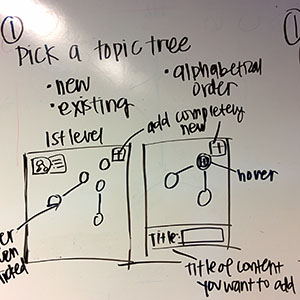 1
Pick a topic tree
• new
• existing
• alphabetical
order
1st level
add completely
new
+
+
hover
Title:
Title of content
you want to add